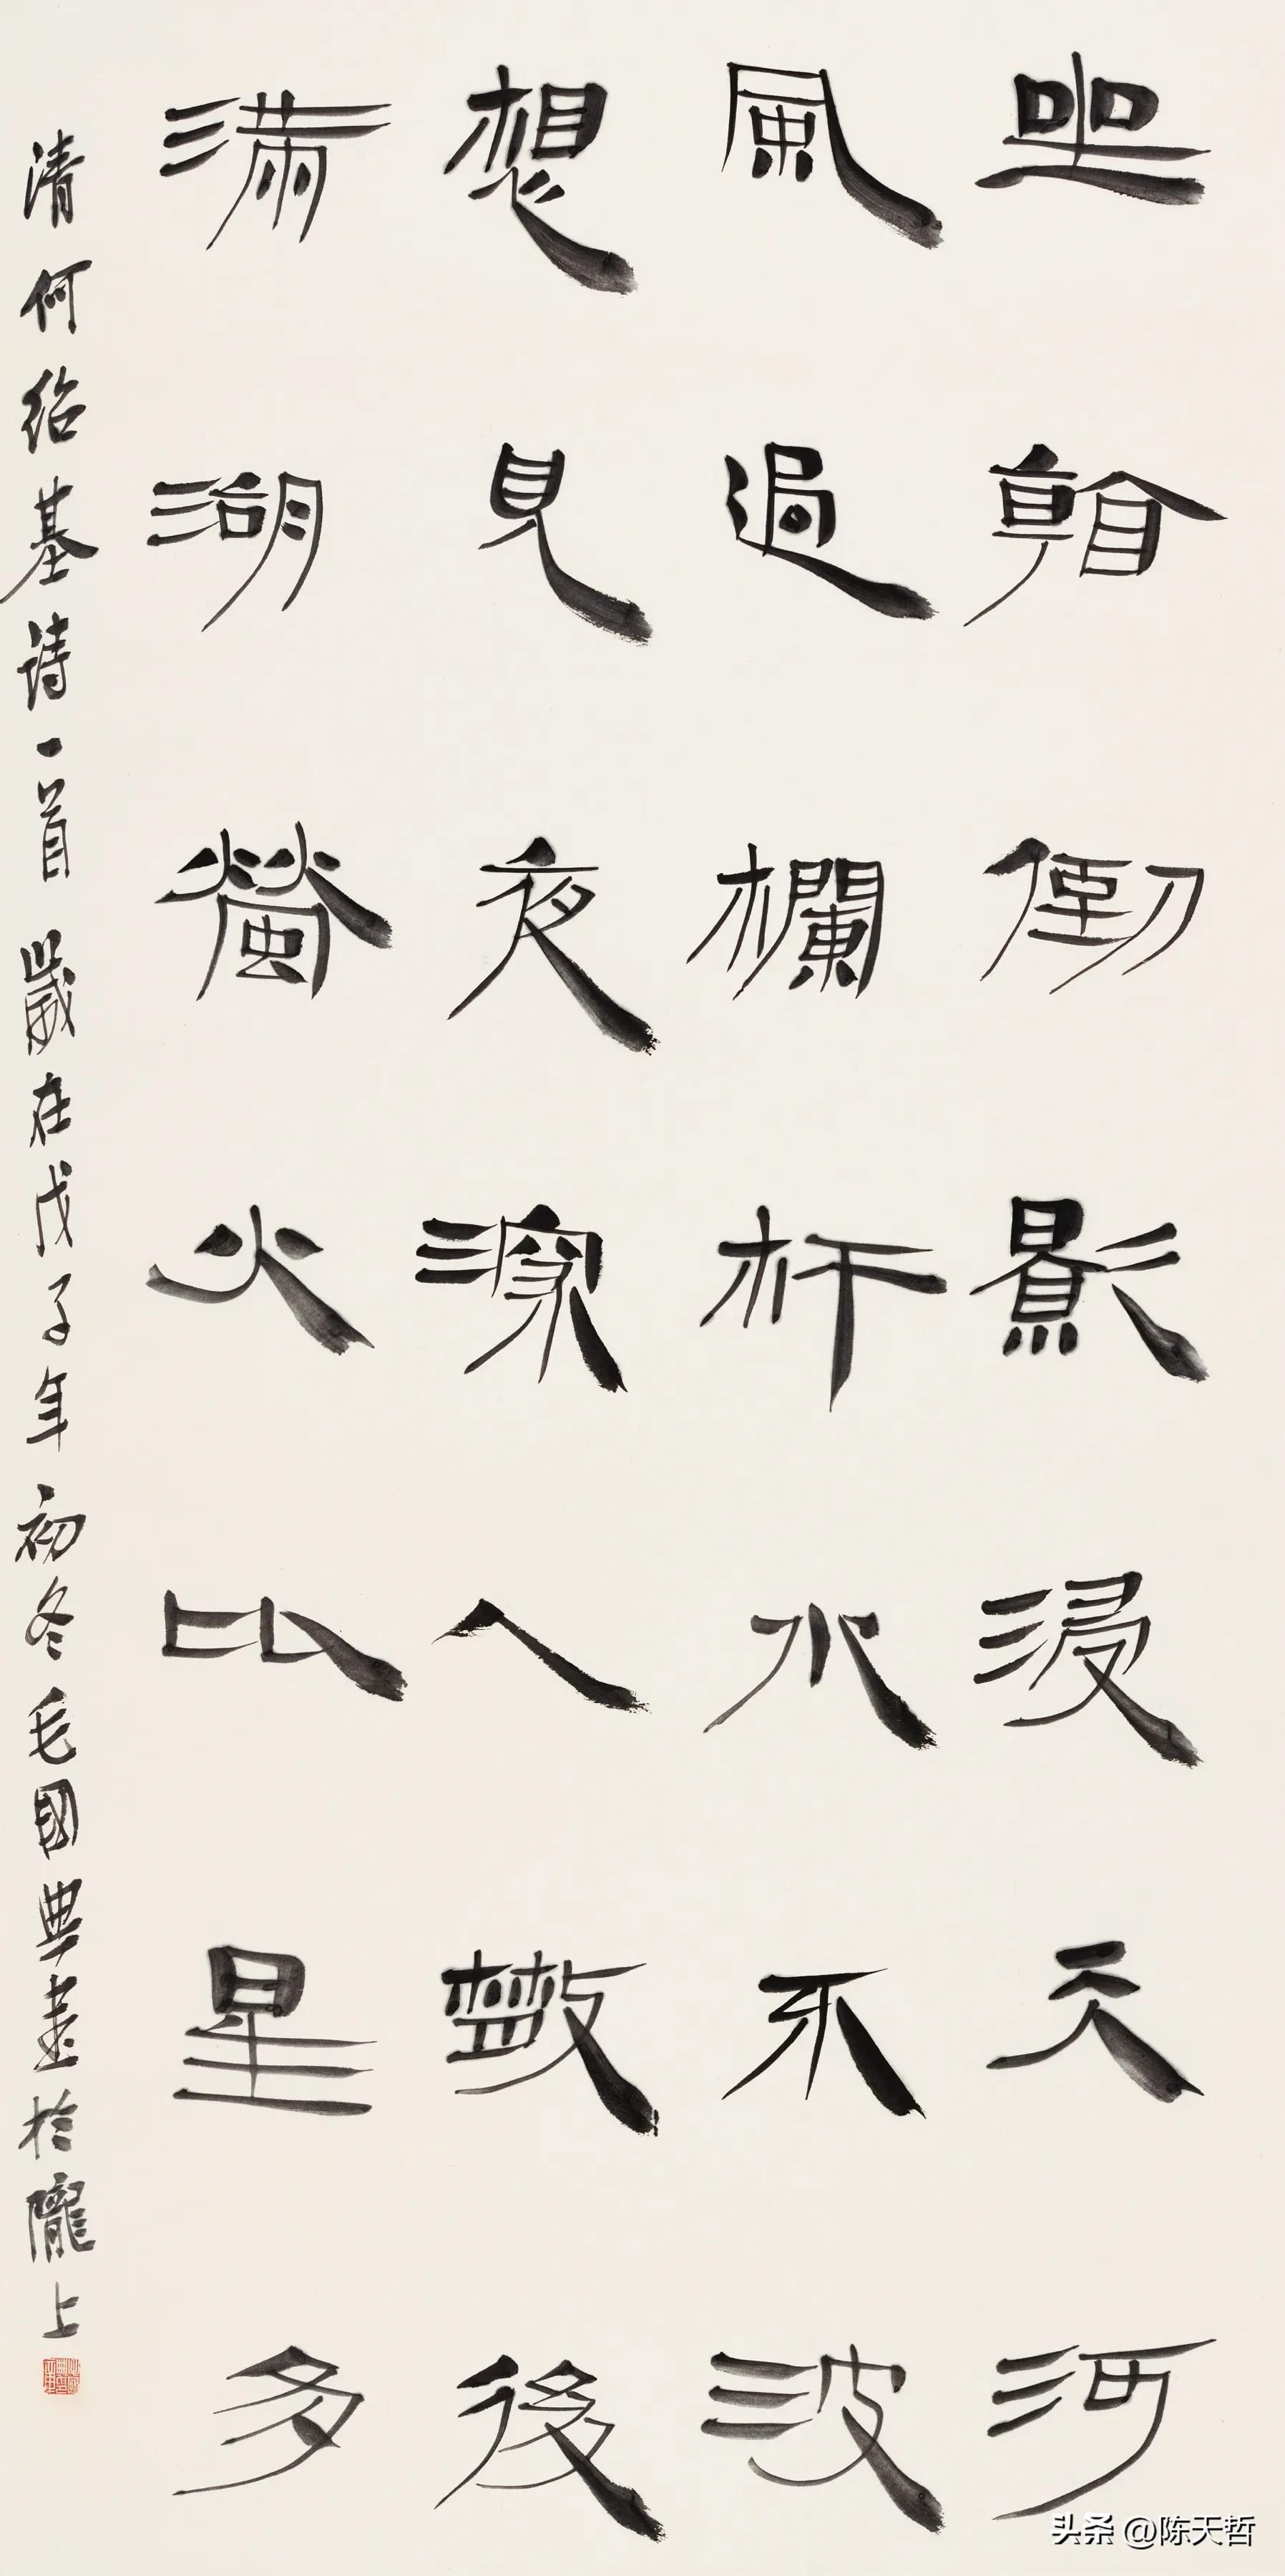 坐看倒影浸天河
風過欄杆水不波
想見夜深人散後
滿湖螢火比星多
清何紹基詩一首 歲在戊子年初冬毛國典書於隴上
头条 @陈天哲